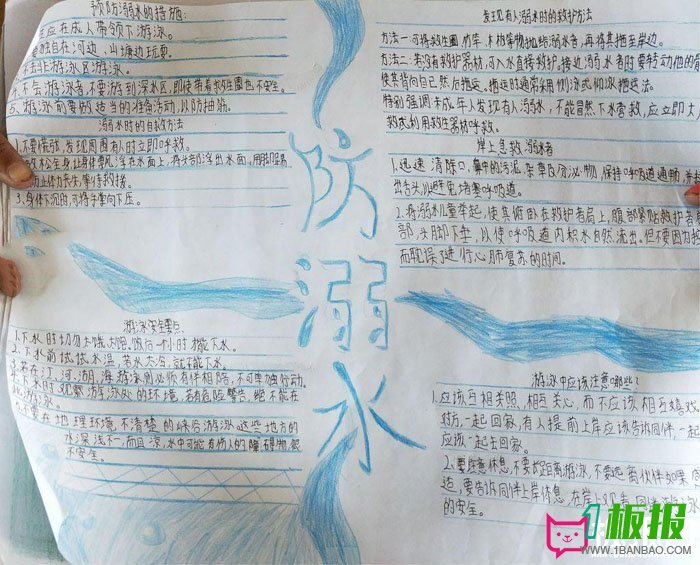 预防溺水的措施:
应在成人带领下游泳。
要独自在河边、山塘边玩耍。
非游泳区游泳。
不会游泳者,不要游到深水区,即使带着救生圈也不安全。
五、游泳前要做适当的准备活动,以防抽筋。
溺水时的自救方法
1.不要慌张,发现周围有人时立即呼救。
放松全身,让身体漂浮在水面上,将头部浮出水面,用脚踢
防止体力丧失,等待救援。
3.身体下沉时,可将手掌向下压。
游泳安全要点
1.下水时切勿太饿、太饱。饭后一小时才能下水。
2.下水前试试水温,若水太冷,就不能下水。
若在江、河、湖、海游泳,则必须有伴相陪,不可单独行动。
下水时观察游泳处的环境,若有危险警告,绝不能在
此游泳。
不要在地理环境不清楚的峡谷游泳。这些地方的
水深浅不一,而且凉,水中可能有伤人的障碍物,很
不安全。
防溺水
发现有人溺水时的救护方法
方法一:可将救生圈、竹竿、木板等物抛给溺水者,再将其拖至岸边。
方法二:若没有救护器材,可入水直接救护。接近溺水者时要转动他的
使其背向自己然后拖运。拖运时通常采用侧泳或仰泳拖运法。
特别强调:未成年人发现有人溺水,不能冒然下水营救,应立即大
救或利用救生器材呼救。
岸上急救溺水者
1.迅速清除口、鼻中的污泥、杂草及分泌物,保持呼吸道通畅,并
出舌头,以避免堵塞呼吸道。
2.将溺水儿童举起,使其俯卧在救护者肩上,腹部紧贴救护者
部,头脚下垂,以使呼吸道内积水自然流出。但不要因为
而耽误了进行心肺复苏的时间。
游泳中应该注意哪些?
1.应该互相关照,相互关心,而不应该相互嬉戏
持方,一起回家,有人提前上岸应该告诉同伴,一
应该一起去回家。
2.要注意休息,不要超距离游泳,不要远离伙伴如果
适,要告诉同伴上岸休息,在岸上观看
的安全。
1板报
WWW.1BANBAO.COM